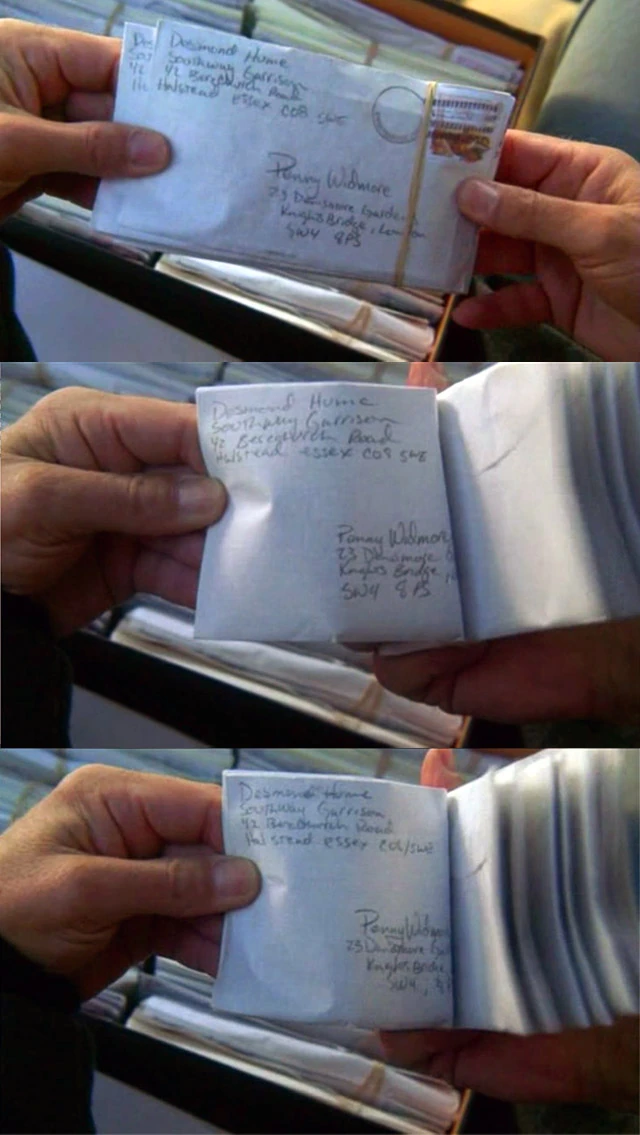 Desmond Hume
Southway Garrison
42 Berechurch Road
Halstead ESSEX CO8 5WE
Penny Widmore
23 Dansmore Gardens
Knights Bridge, London
SW4 8PS
Desmond Hume
Southway Garrison
42 Berechurch Road
Halstead essex CO8 5WE
Penny Widmore
23 Dansmore
Knights Bridge
SW4 8PS
Desmond Hume
Southway Garrison
42 Berechurch Road
Halstead essex
Penny Widmore
23 Dansmore
Knights Bridge
SW4